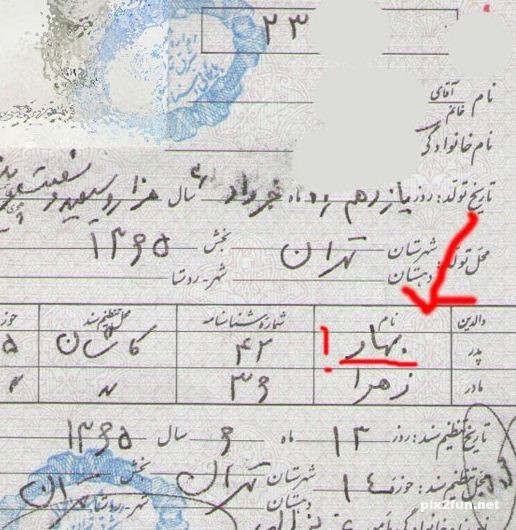 ۲۳
نام آقای
خانم
نام خانوادگی
تاریخ تولد: روز یازدهم ماه خرداد سال هزار و سیصد و شصت
محل تولد: شهرستان تهران بخش ۱۳۶۵
دهستان شهر - روستا
والدین نام شماره شناسنامه محل تنظیم سند حوز
پدر بهار ! ۴۲ کاشان ۵
مادر زهرا ۳۶ 〃 〃
تاریخ تنظیم سند: روز ۱۳ ماه ۶ سال ۱۳۶۵
محل تنظیم سند: حوزه ۱۴ شهرستان تهران بخش
دهستان شهر - روستا تهران
pix2fun.net